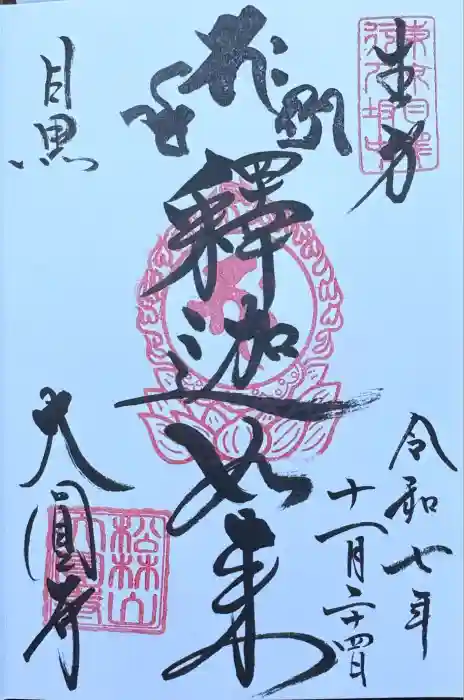 東京目黒
行人坂中
生身
令和七年
十一月二十四日
釋迦如来
目黒
大圓寺
松林山
大圓寺